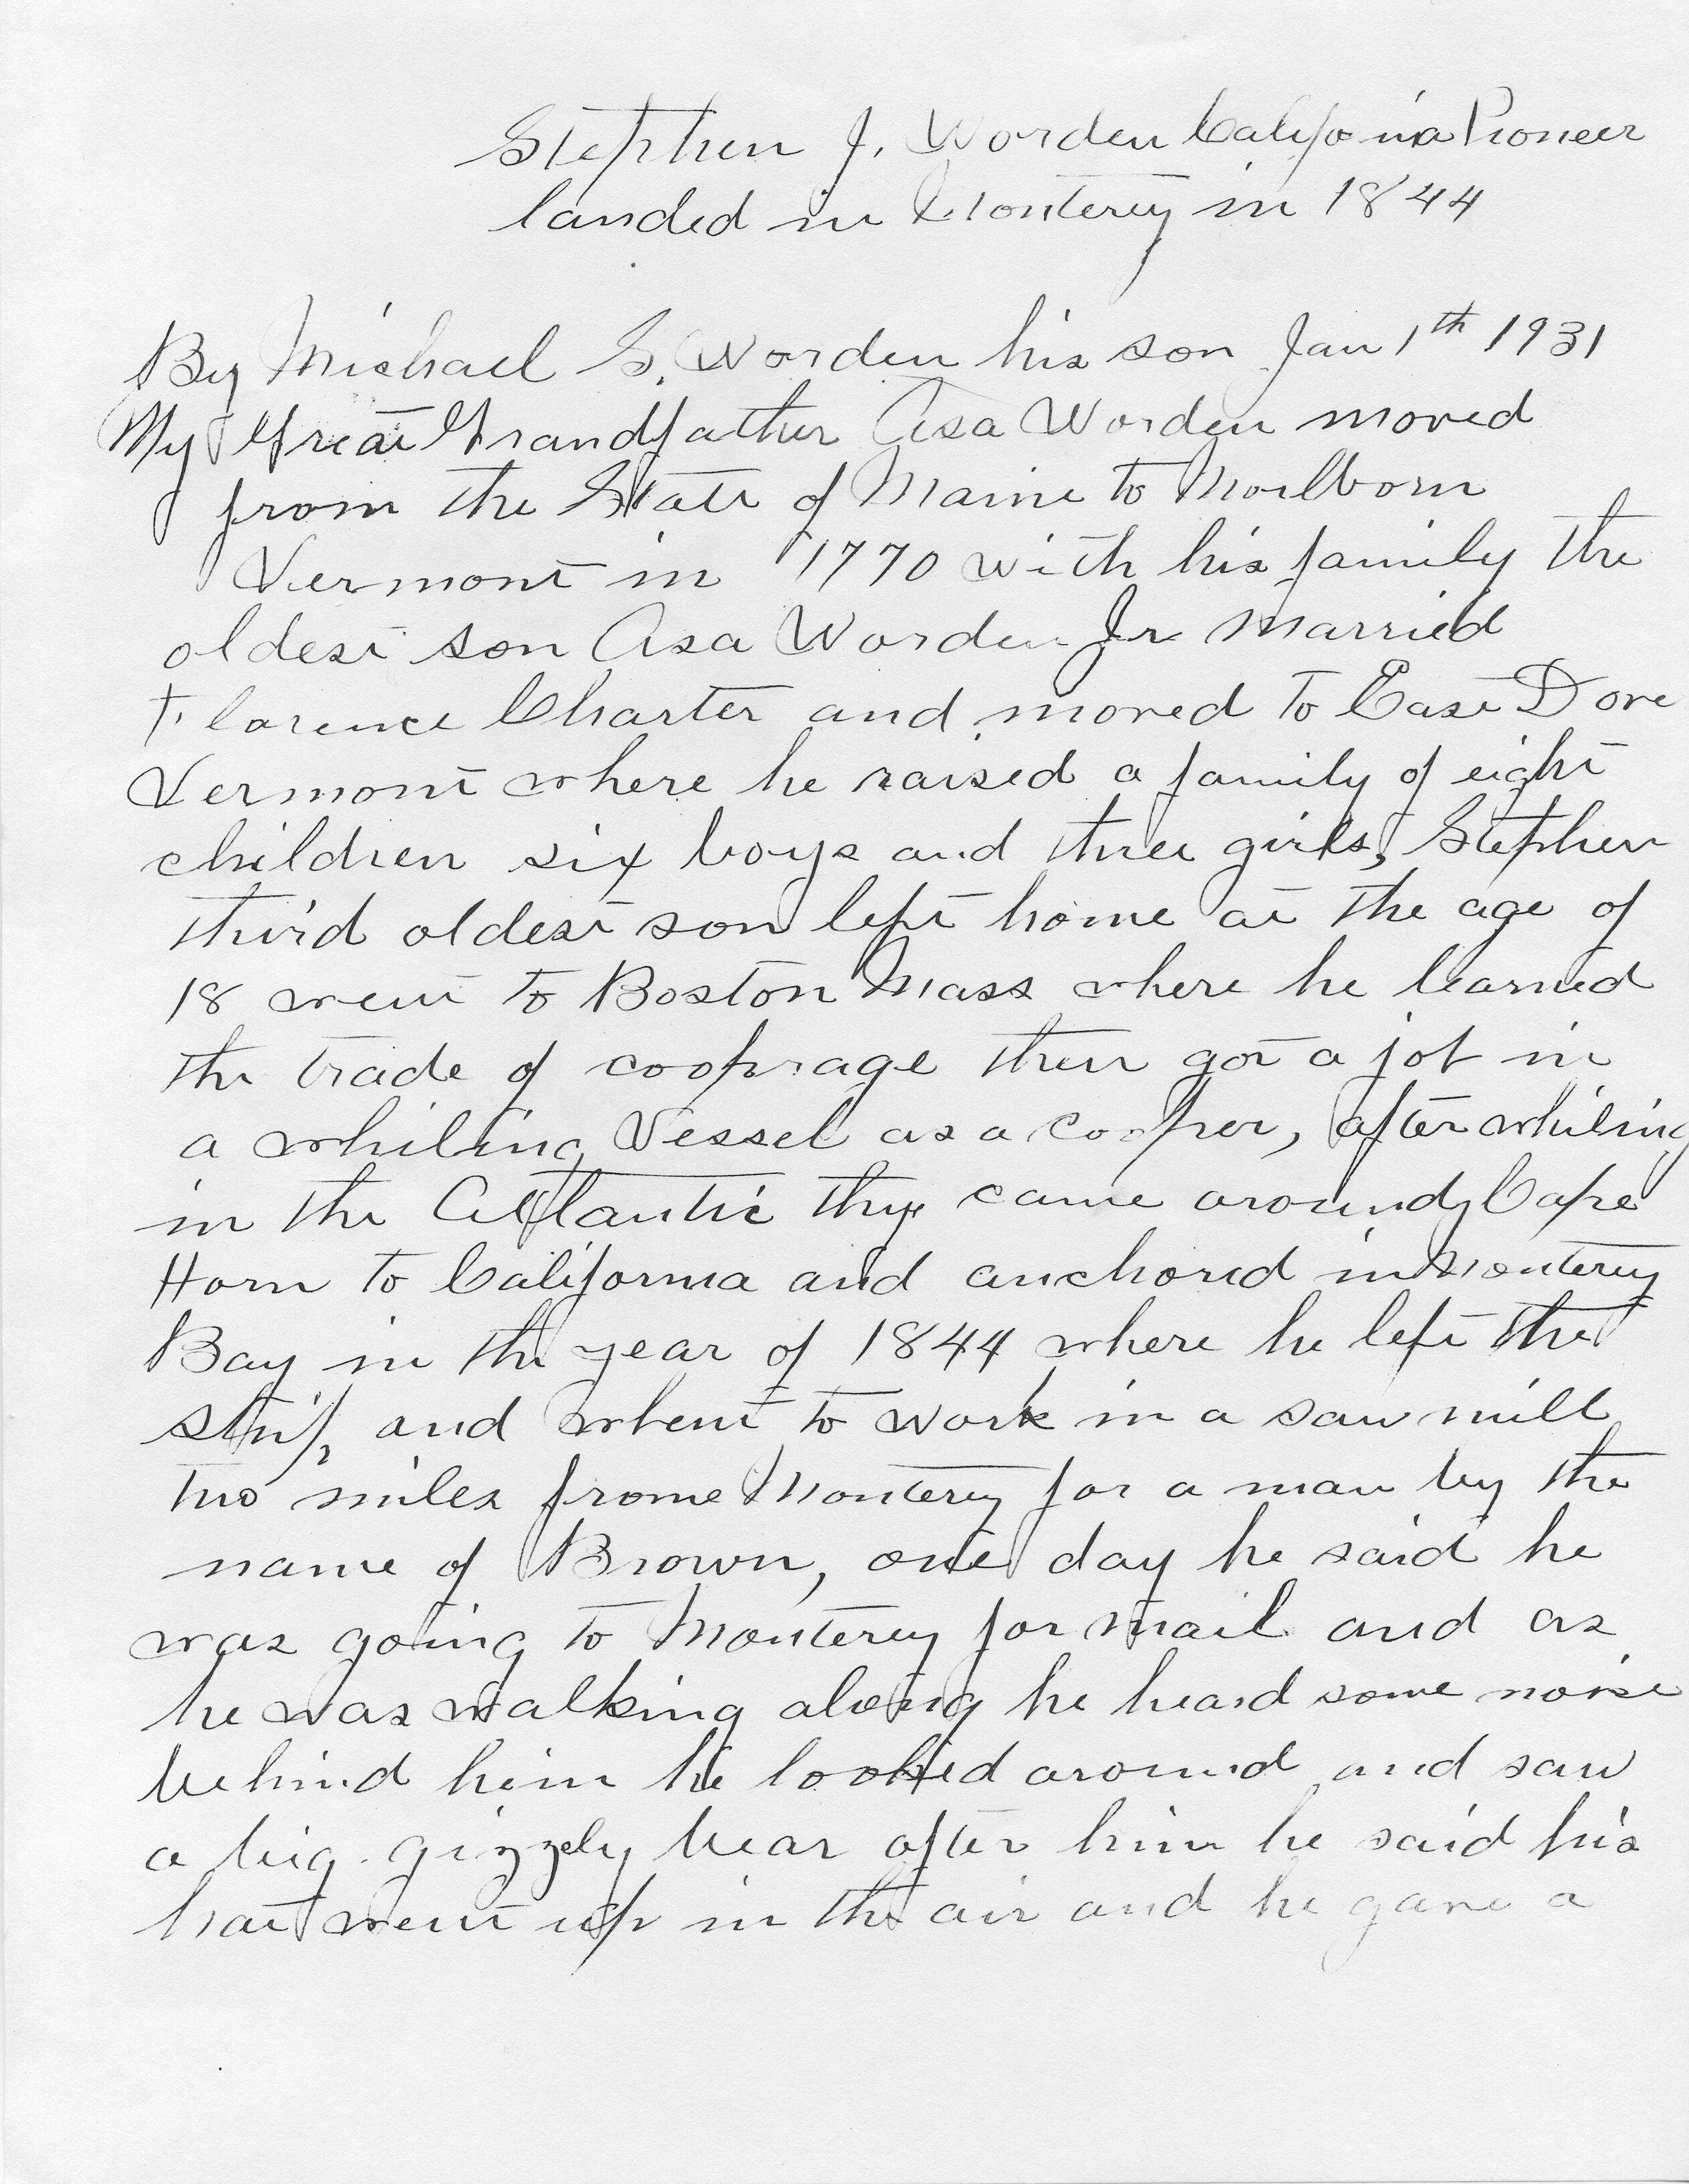 Stephen J. Worden California Pioneer
landed in Monterey in 1844
By Michael S. Worden his son Jan 1th 1931
My Great Grandfather Asa Worden moved
from the State of Maine to Marlborn
Vermont in 1770 with his family the
oldest son Asa Worden Jr married
Florence Charter and moved to East Dore
Vermont where he raised a family of eight
children six boys and three girls, Stephen
third oldest son left home at the age of
18 went to Boston Mass where he learned
the trade of cooprage then got a job in
a whiling Vessel as a cooper, after whiling
in the Atlantic they came around Cape
Horn to California and anchored in Monterey
Bay in the year of 1844 where he left the
ship and whent to work in a saw mill
two miles frome Monterey for a man by the
name of Brown, one day he said he
was going to Monterey for mail and as
he was walking along he heard some noise
behind him he looked around and saw
a big gizzely bear after him he said his
hat went up in the air and he gave a